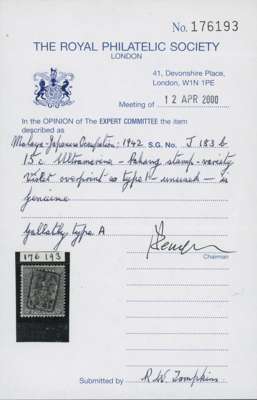 No. 176193
THE ROYAL PHILATELIC SOCIETY
LONDON
41, Devonshire Place,
London, W1N 1PE
Meeting of 12 APR 2000
In the OPINION of The EXPERT COMMITTEE the item
described as
Malaya - Japanese Occupation: 1942 S.G. No. J 183 b
15c Ultramarine - Pahang stamp - variety
Violet overprint as type 1 - unused - is
genuine
Gallatly type A
Chairman
176 193
Submitted by R.W. Tompkins